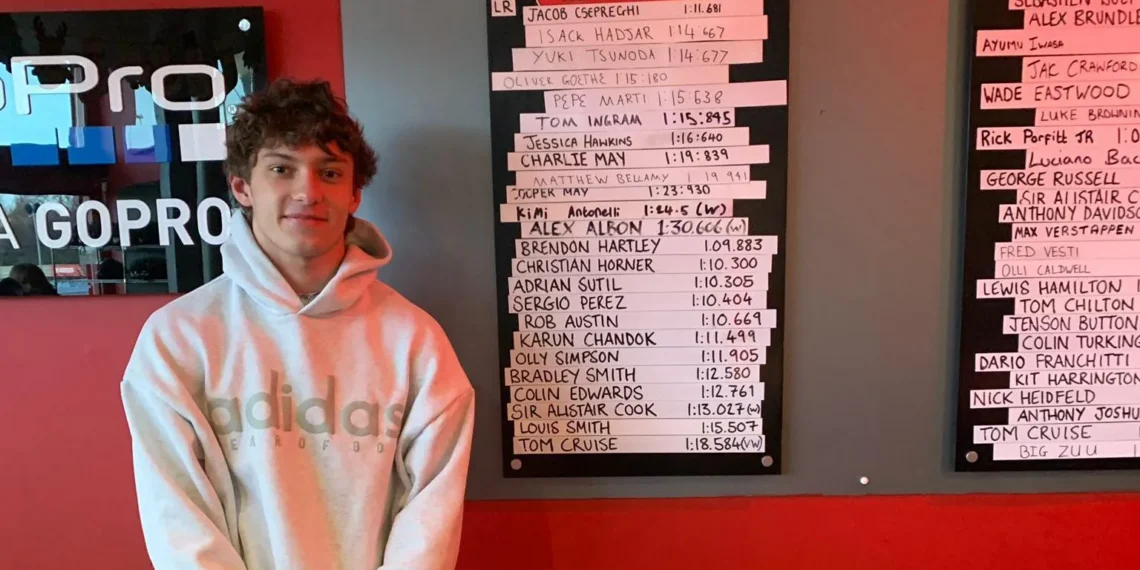 Pro
A GOPRO
adidas
LR
JACOB CSEPREGHI 1:11.681
ISACK HADJAR 1:14 667
YUKI TSUNODA 1:14:677
OLIVER GOETHE 1:15:180
PEPE MARTI 1:15:638
TOM INGRAM 1:15:845
JESSICA HAWKINS 1:16:640
CHARLIE MAY 1:19:839
MATTHEW BELLAMY 1 19 941
COOPER MAY 1:23:930
KiMi Antonelli 1:24.5 (W)
ALEX ALBON 1:30,606 (W)
BRENDON HARTLEY 1.09.883
CHRISTIAN HORNER 1:10.300
ADRIAN SUTIL 1:10.305
SERGIO PEREZ 1:10.404
ROB AUSTIN 1:10.669
KARUN CHANDOK 1:11.499
OLLY SIMPSON 1:11.905
BRADLEY SMITH 1:12.580
COLIN EDWARDS 1:12.761
SIR ALISTAIR COOK 1:13.027(W)
LOUIS SMITH 1:15.507
TOM CRUISE 1:18.584(VW)
ALEX BRUNDLE
AYUMU IWASA
JAC CRAWFORD
WADE EASTWOOD
LUKE BROWNIN
RICK PORFITT JR 1:0
LUCIANO BAC
GEORGE RUSSELL
SIR ALISTAIR C
ANTHONY DAVIDSO
MAX VERSTAPPEN
FRED VESTI
OLLI CALDWELL
LEWIS HAMILTON 1
TOM CHILTON
JENSON BUTTON
COLIN TURKING
DARIO FRANCHITTI
KIT HARRINGTON
NICK HEIDFELD
ANTHONY JOSHU
TOM CRUISE
BIG ZUU 1